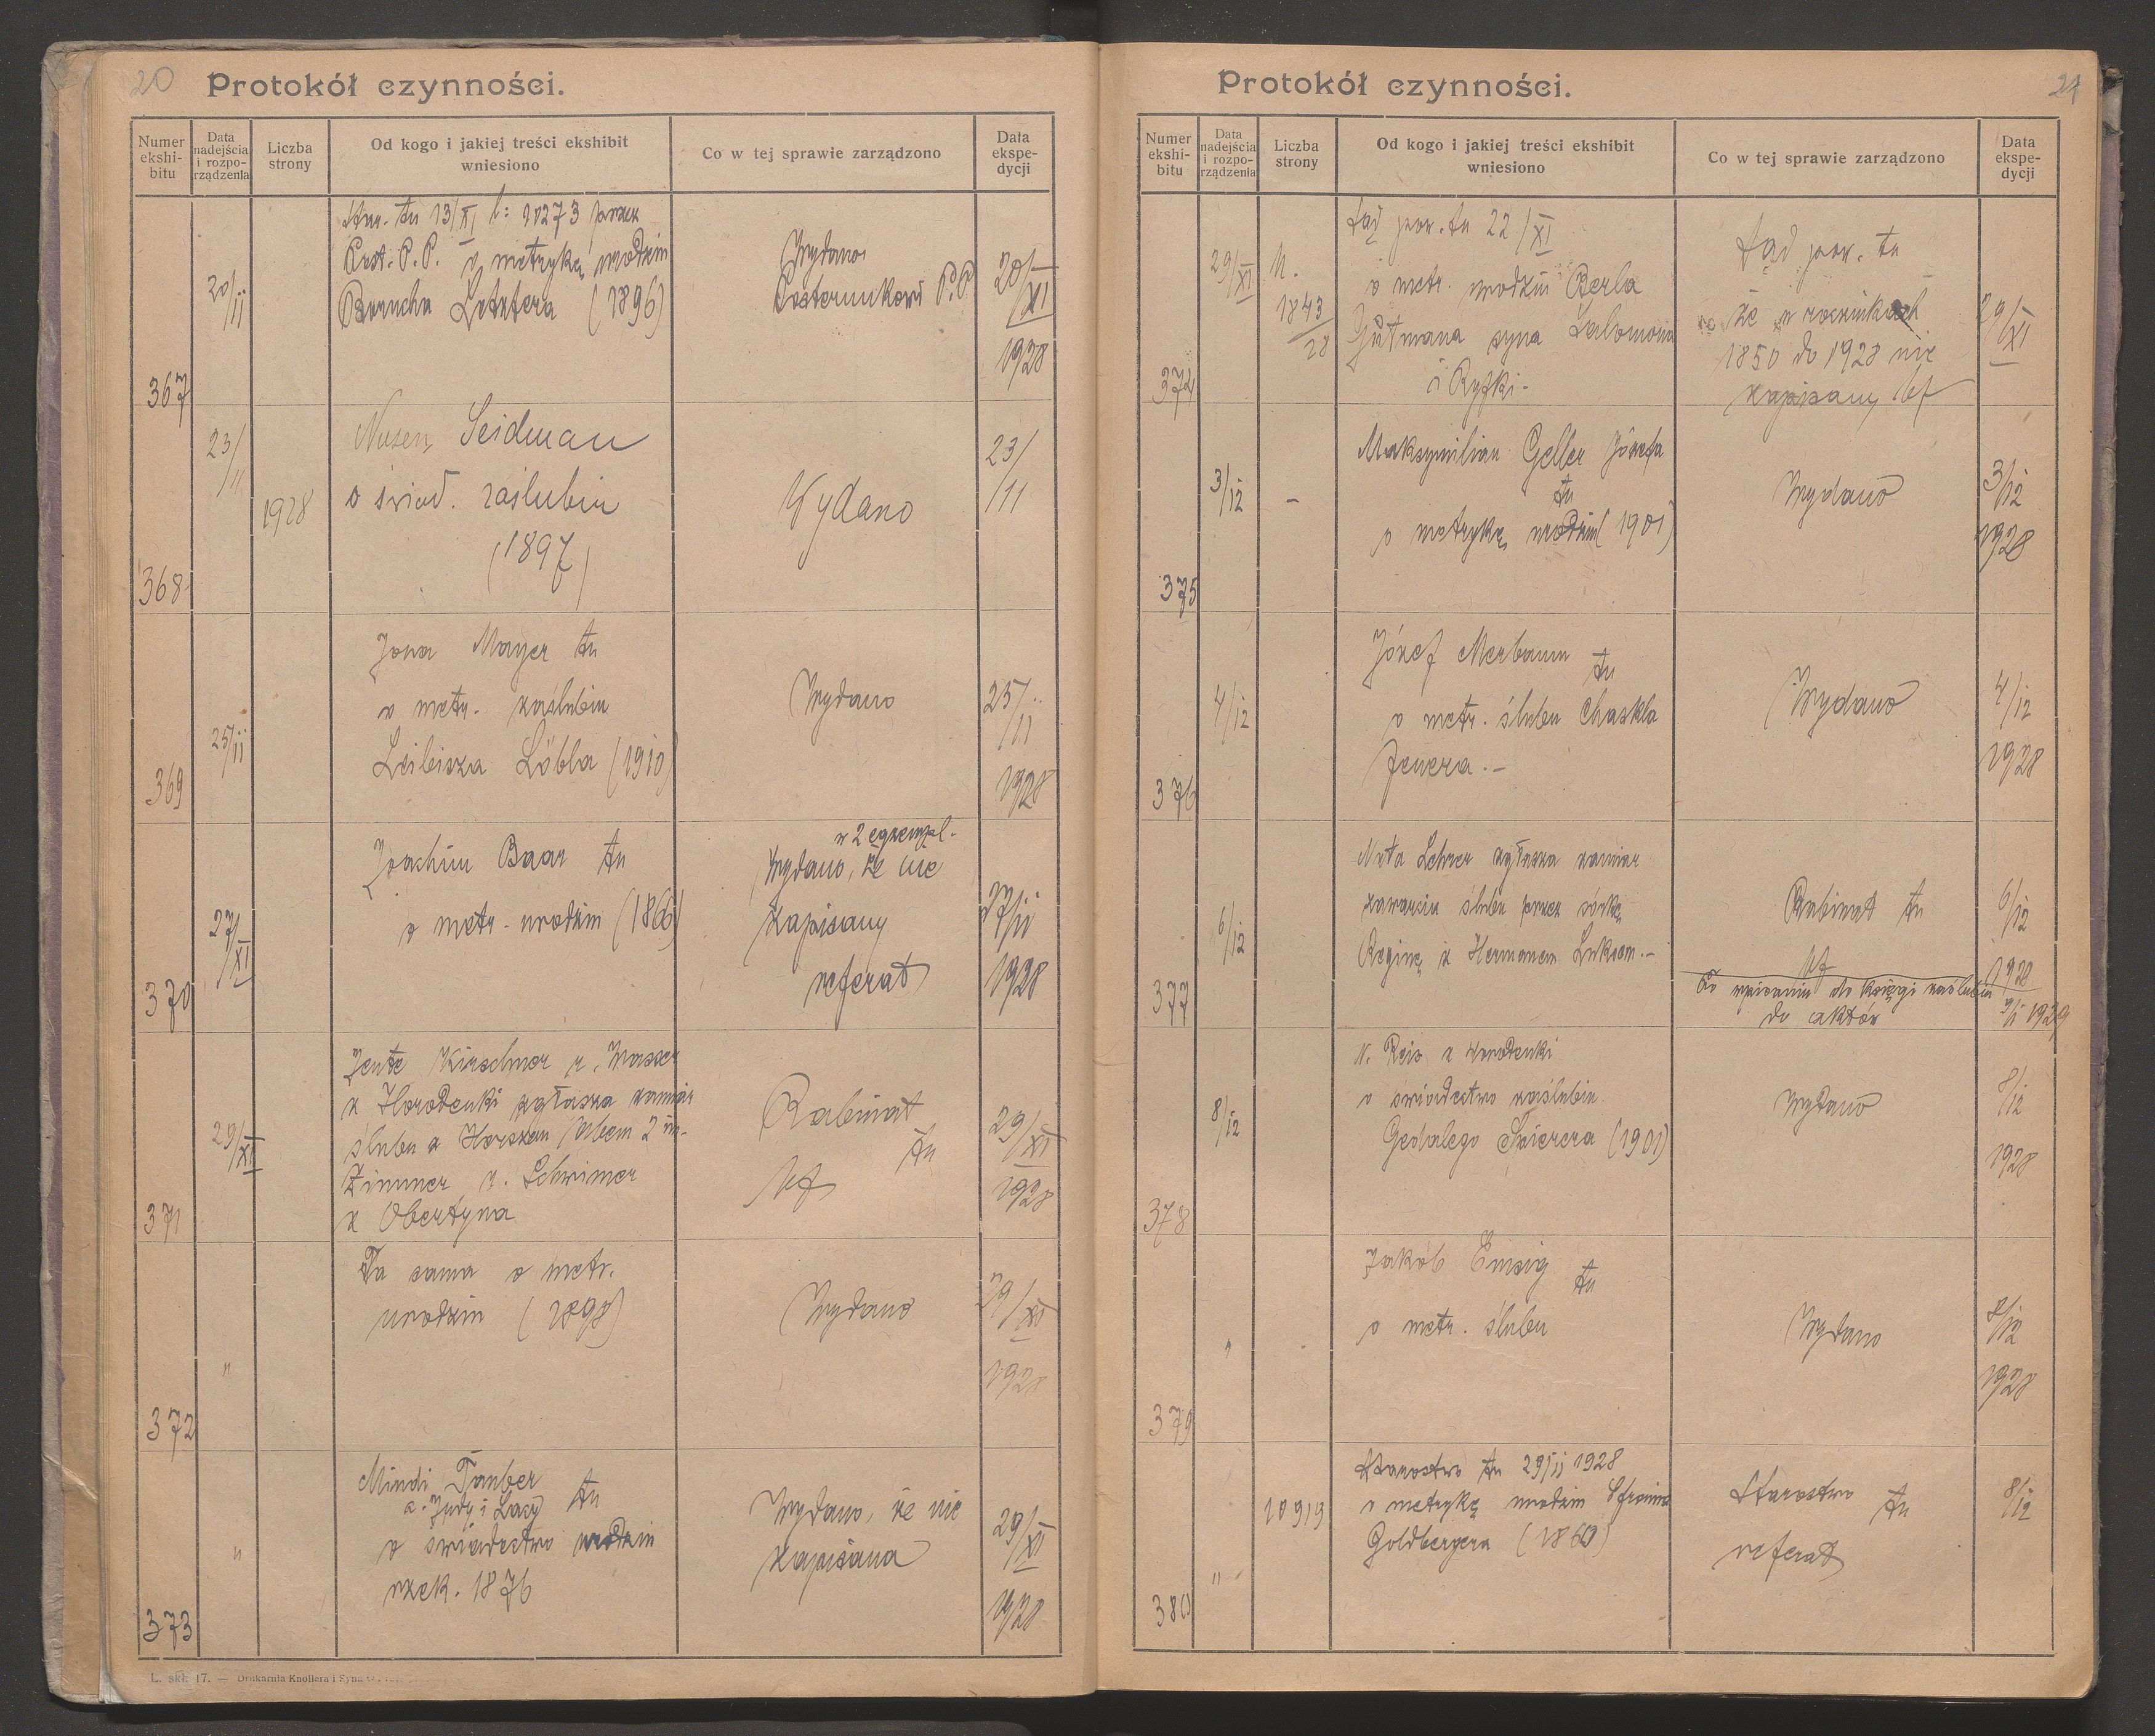 20
Protokół czynności.
Numer ekshi-bitu
Data nadejścia i rozpo-rządzenia
Liczba strony
Od kogo i jakiej treści ekshibit wniesiono
Co w tej sprawie zarządzono
Data ekspe-dycji
367
20/11
Star. tu 13/XI l: 10273 przez
Post. P.P. o metrykę urodzin
Barucha Letztera (1896)
Wydano
Posterunkowi P.P.
20/XI
1928
368
23/11
1928
Seidman
o świad. zaślubin
(1897)
Wydano
23/11
369
25/11
Jona Mayer tu
o metr. zaślubin
Leibisza Löbla (1910)
Wydano
25/11
1928
370
27/XI
Joachim Baar tu
o metr. urodzin (1866)
w 2 egzempl.
Wydano, że nie
zapisany
referat
27/11
1928
371
29/XI
Jente Kirschner r. Wasser
z Horodenki zgłasza zamiar
ślubu z
Zimmer r. Schwimer
z Obertyna
Rabinat
tu
29/XI
1928
372
"
Ta sama o metr.
urodzin (1898)
Wydano
29/XI
1928
373
"
Mindi Tauber
c. Judy i Lacy tu
o świadectwo urodzin
rzek. 1876
Wydano, że nie
zapisana
29/XI
1928
L. skł. 17. — Drukarnia Knollera i Syna
21
Protokół czynności.
Numer ekshi-bitu
Data nadejścia i rozpo-rządzenia
Liczba strony
Od kogo i jakiej treści ekshibit wniesiono
Co w tej sprawie zarządzono
Data ekspe-dycji
374
29/XI
1843/28
Sąd pow. tu 22/XI
o metr. urodzin Berla
Gutmana syna Salomona
i Ryfki -
Sąd pow. tu
że w rocznikach
1850 do 1928 nie
zapisany
29/XI
375
3/12
-
Maksymilian Geller Józefa
tu
o metrykę urodzin (1901)
Wydano
3/12
1928
376
4/12
Józef Merbaum tu
o metr. ślubu Chaskla
Jenera. -
Wydano
4/12
1928
377
6/12
Nuta Lehrer zgłasza zamiar
zawarcia ślubu przez córkę
Reginę z Hermanem -
Rabinat tu
Po wpisaniu do księgi zaślubin
do aktów
6/12
378
8/12
N. Reis z Horodenki
o świadectwo zaślubin
Gedalego (1901)
Wydano
8/12
1928
379
"
Jakób Emsig tu
o metr. ślubu
Wydano
8/12
1928
380
"
10919
Starostwo tu 29/11 1928
o metrykę urodzin Efroima
Goldbergera (1860)
Starostwo tu
referat
8/12